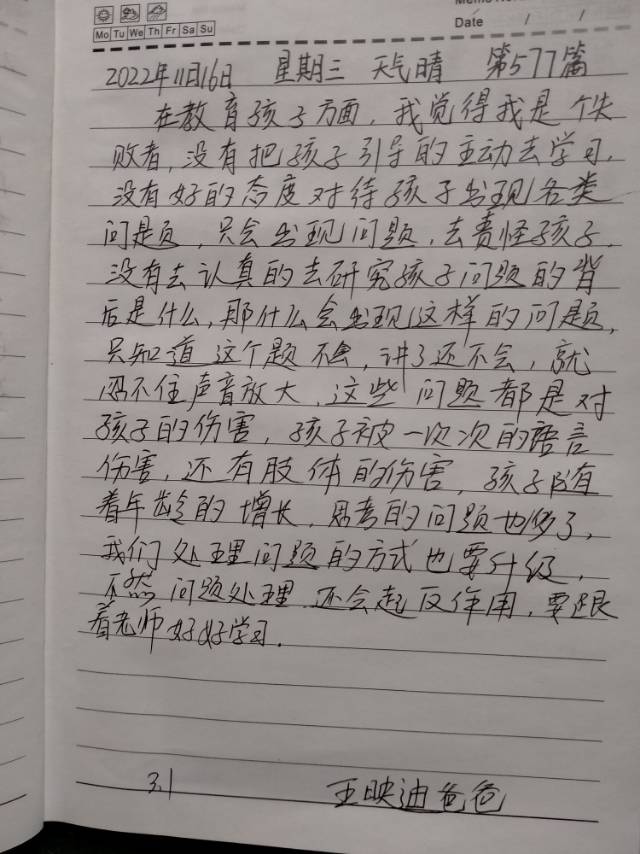 Memo No.
Mo Tu We Th Fr Sa Su
Date / /
2022年11月16日 星期三 天气晴 第577篇
在教育孩子方面，我觉得我是个失
败者，没有把孩子引导的主动去学习，
没有好的态度对待孩子出现各类
问题，只会出现问题，去责怪孩子，
没有去认真的去研究孩子问题的背
后是什么，那什么会出现这样的问题，
只知道这个题不会，讲了还不会，就
忍不住声音放大，这些问题都是对
孩子的伤害，孩子被一次次的语言
伤害，还有肢体的伤害，孩子随有
着年龄的增长，思考的问题也多了，
我们处理问题的方式也要升级，
不然问题处理还会起反作用，要跟
着老师好好学习.
3.1 王映迪爸爸